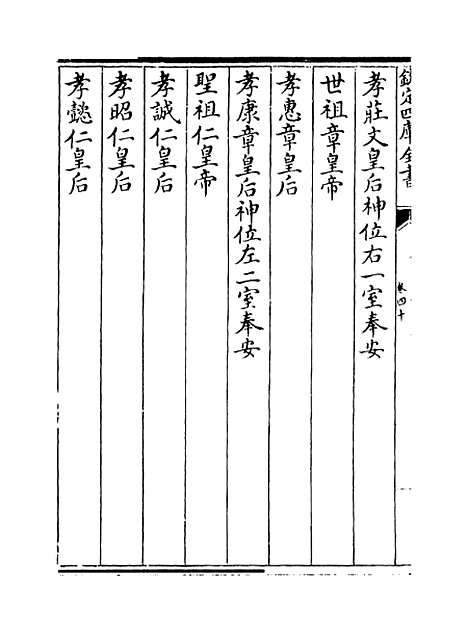 欽定四庫全書
卷四十
孝莊文皇后神位右一室奉安
世祖章皇帝
孝惠章皇后
孝康章皇后神位左二室奉安
聖祖仁皇帝
孝誠仁皇后
孝昭仁皇后
孝懿仁皇后